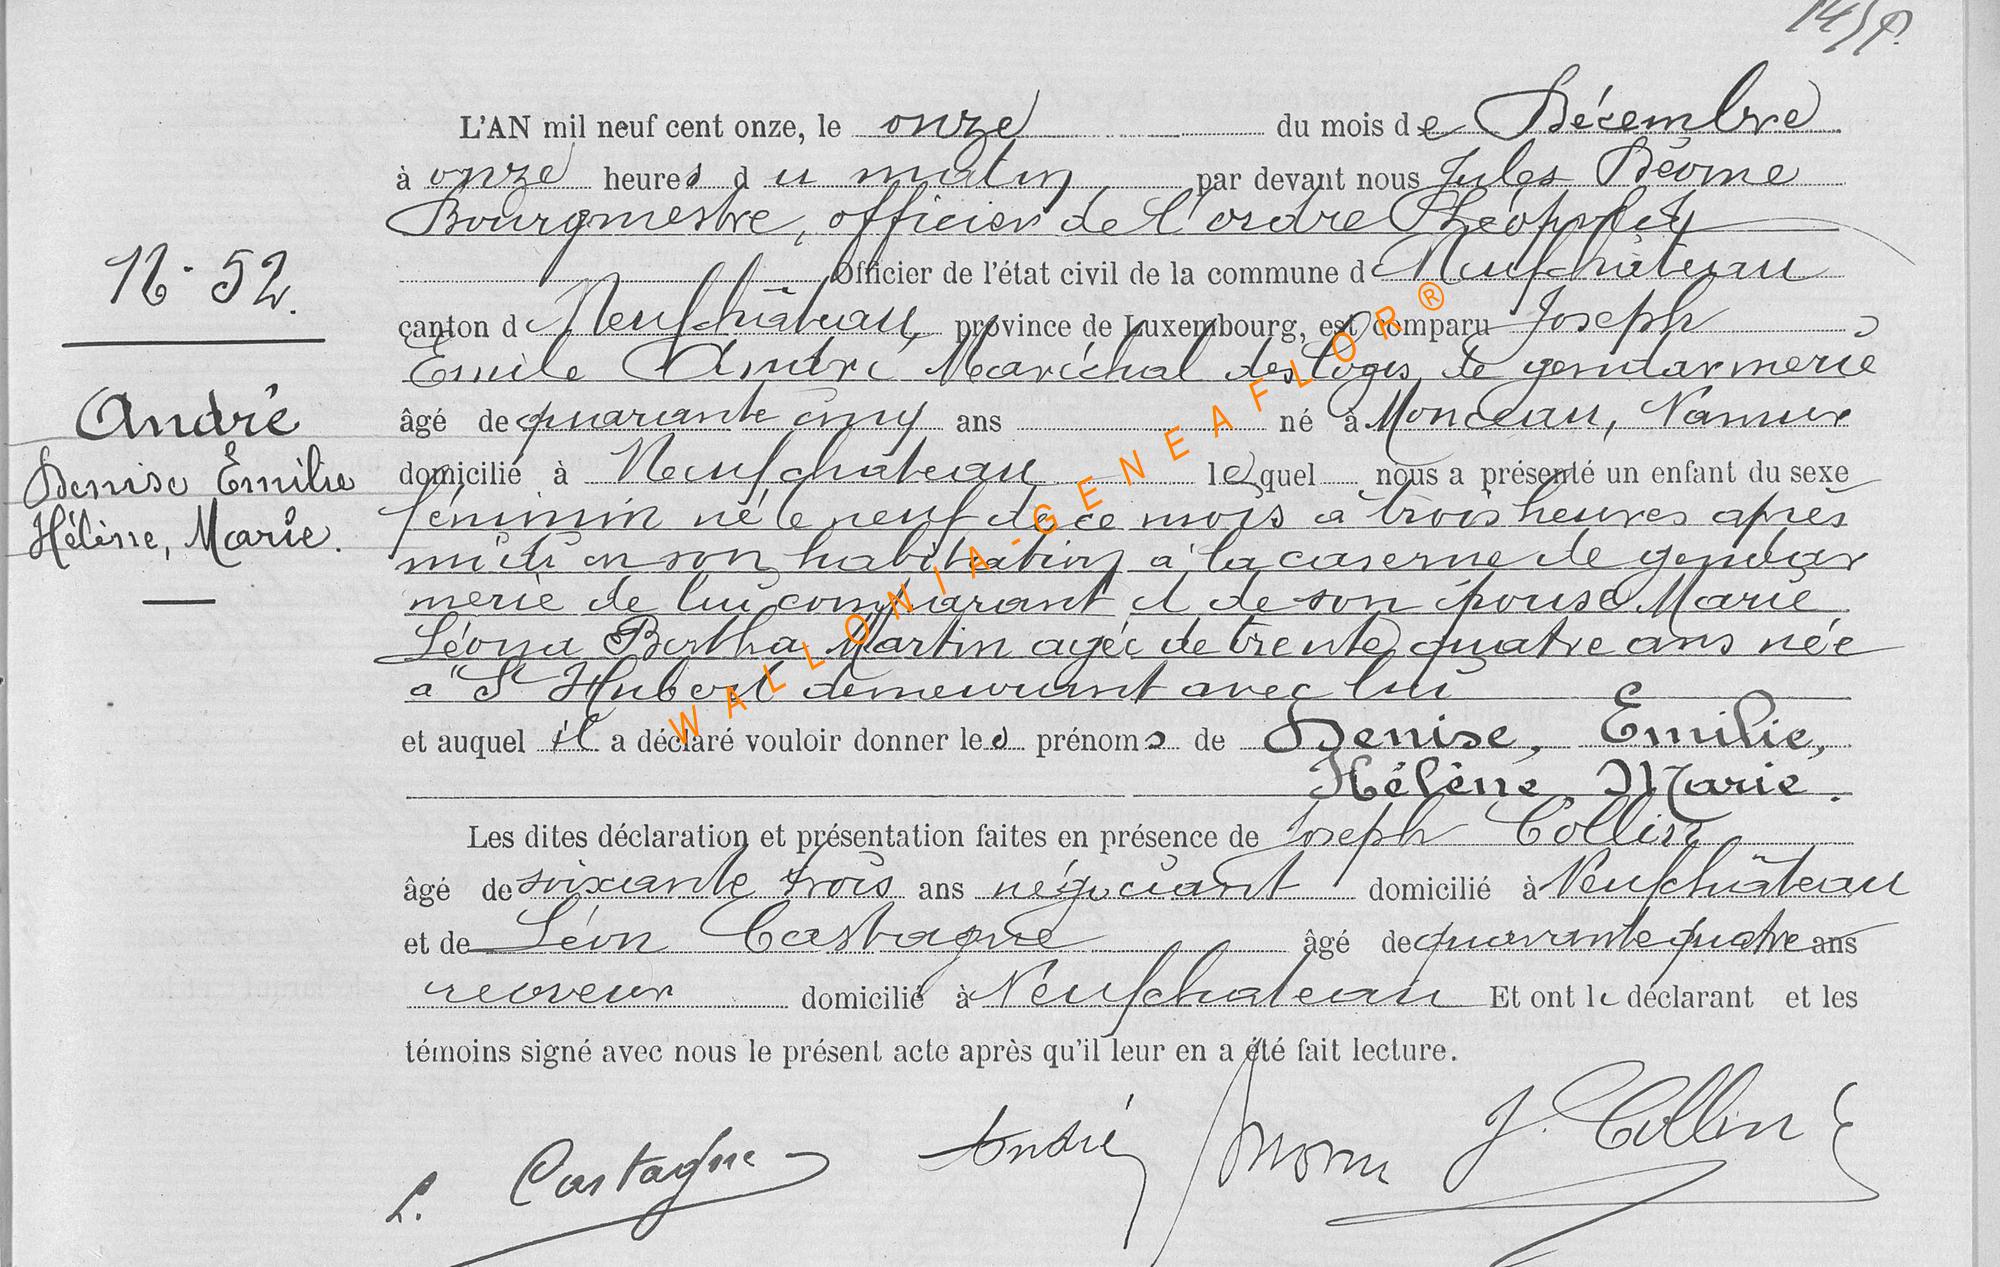 L'AN mil neuf cent onze, le onze du mois de Décembre
à onze heures du matin par devant nous Jules
Bourgmestre, officier de l'ordre Léopold
Officier de l'état civil de la commune de Neufchâteau
canton de Neufchâteau, province de Luxembourg, est comparu Joseph
Emile André Maréchal des logis de gendarmerie
âgé de quarante cinq ans né à Monceau, Namur
domicilié à Neufchateau lequel nous a présenté un enfant du sexe
féminin né le neuf de ce mois à trois heures après
midi en son habitation à la caserne de gendar
merie de lui comparant et de son épouse Marie
Léona Bertha Martin agée de trente quatre ans née
à St Hubert demeurant avec lui
et auquel il a déclaré vouloir donner les prénoms de Denise, Emilie,
Hélène Marie.
Les dites déclaration et présentation faites en présence de Joseph Collin
âgé de soixante trois ans négociant domicilié à Neufchâteau
et de Léon Castagne âgé de quarante quatre ans
receveur domicilié à Neufchateau Et ont le déclarant et les
témoins signé avec nous le présent acte après qu'il leur en a été fait lecture.
L. Castagne André J. Collin
N° 52.
André
Denise Emilie
Hélène, Marie.
WALLONIA-GENEAFLOR®